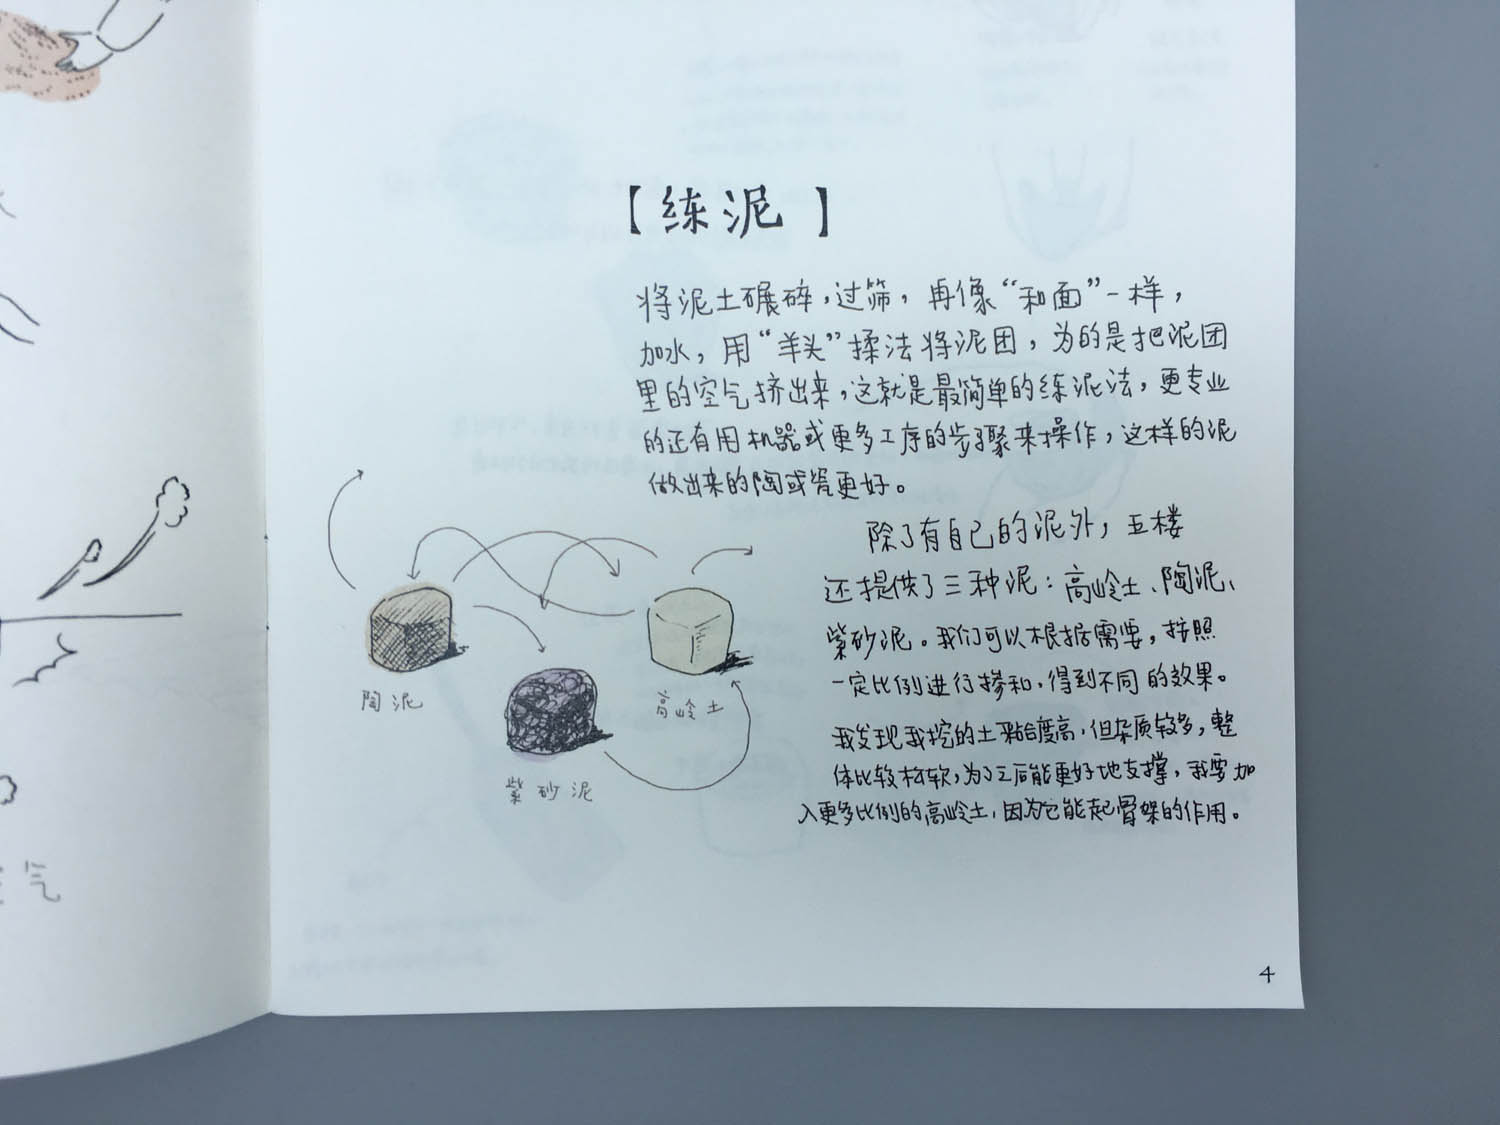 气
【练泥】
将泥土碾碎，过筛，再像“和面”一样，
加水，用“羊头”揉法将泥团，为的是把泥团
里的空气挤出来，这就是最简单的练泥法，更专业
的还有用机器或更多工序的步骤来操作，这样的泥
做出来的陶或瓷更好。
除了有自己的泥外，五楼
还提供了三种泥：高岭土、陶泥、
紫砂泥。我们可以根据需要，按照
一定比例进行掺和，得到不同的效果。
我发现我挖的土黏度高，但杂质较多，整
体比较松软，为了之后能更好地支撑，我要加
入更多比例的高岭土，因为它能起骨架的作用。
陶泥
高岭土
紫砂泥
4